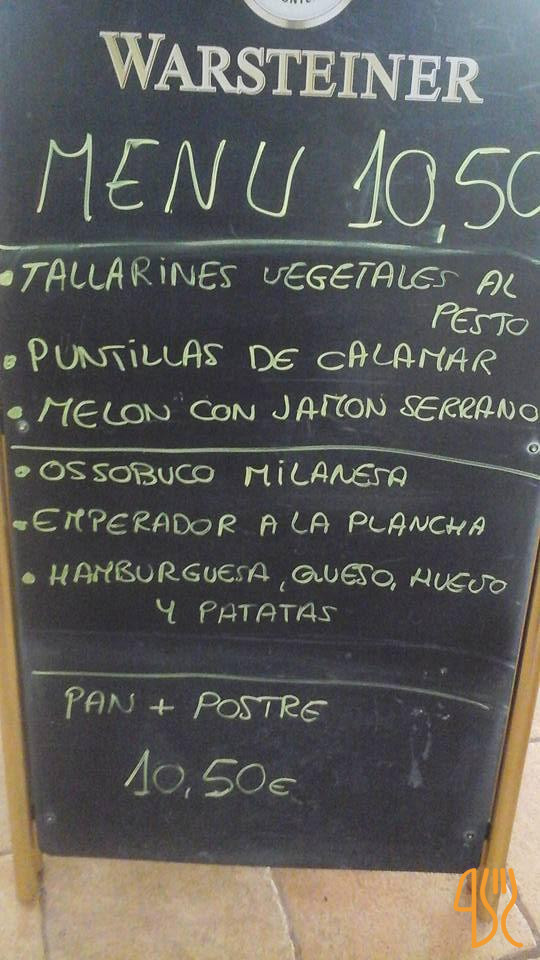 WARSTEINER
MENU 10,50
• TALLARINES VEGETALES AL
PESTO
• PUNTILLAS DE CALAMAR
• MELON CON JAMON SERRANO
• OSSOBUCO MILANESA
• EMPERADOR A LA PLANCHA
• HAMBURGUESA, QUESO, HUEVO
Y PATATAS
PAN + POSTRE
10,50€